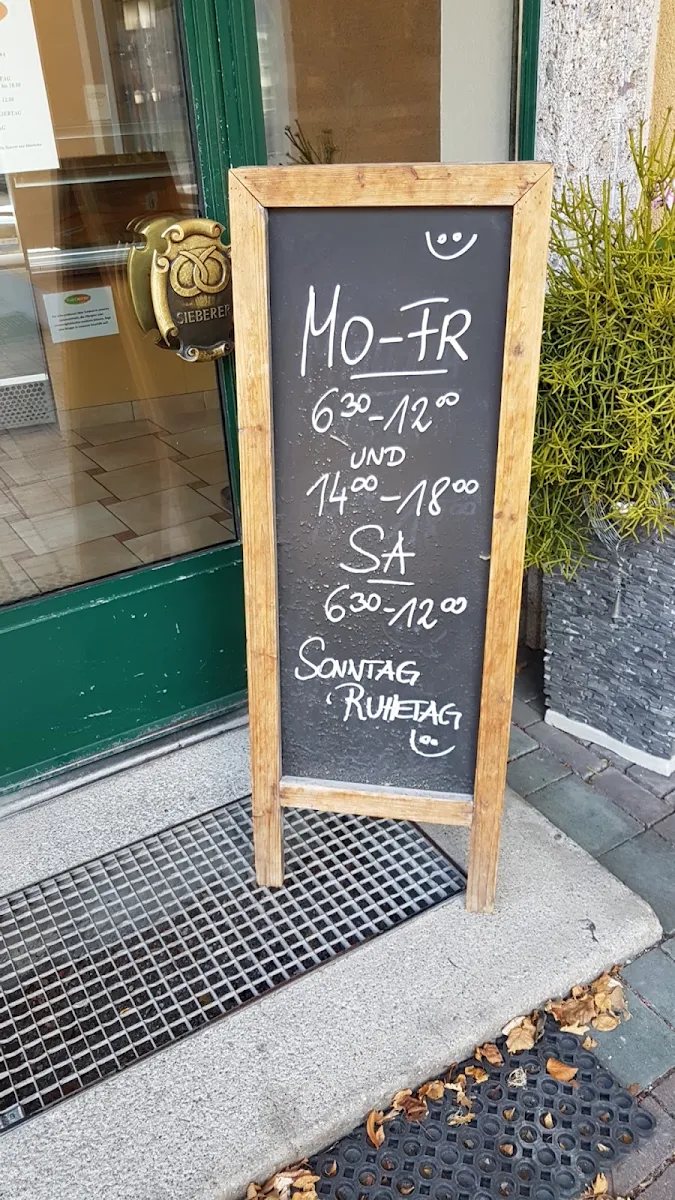 SIEBERER
MO-FR
6³⁰-12⁰⁰
UND
14⁰⁰-18⁰⁰
SA
6³⁰-12⁰⁰
SONNTAG
RUHETAG